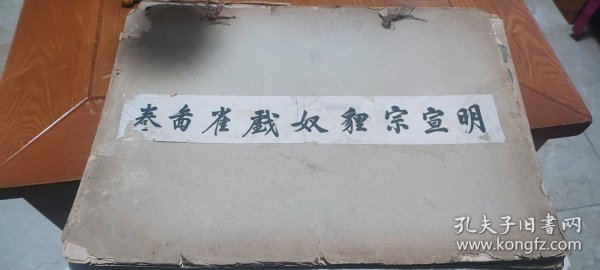 明宣宗貍奴戲雀畫卷
孔夫子旧书网
www.kongfz.com